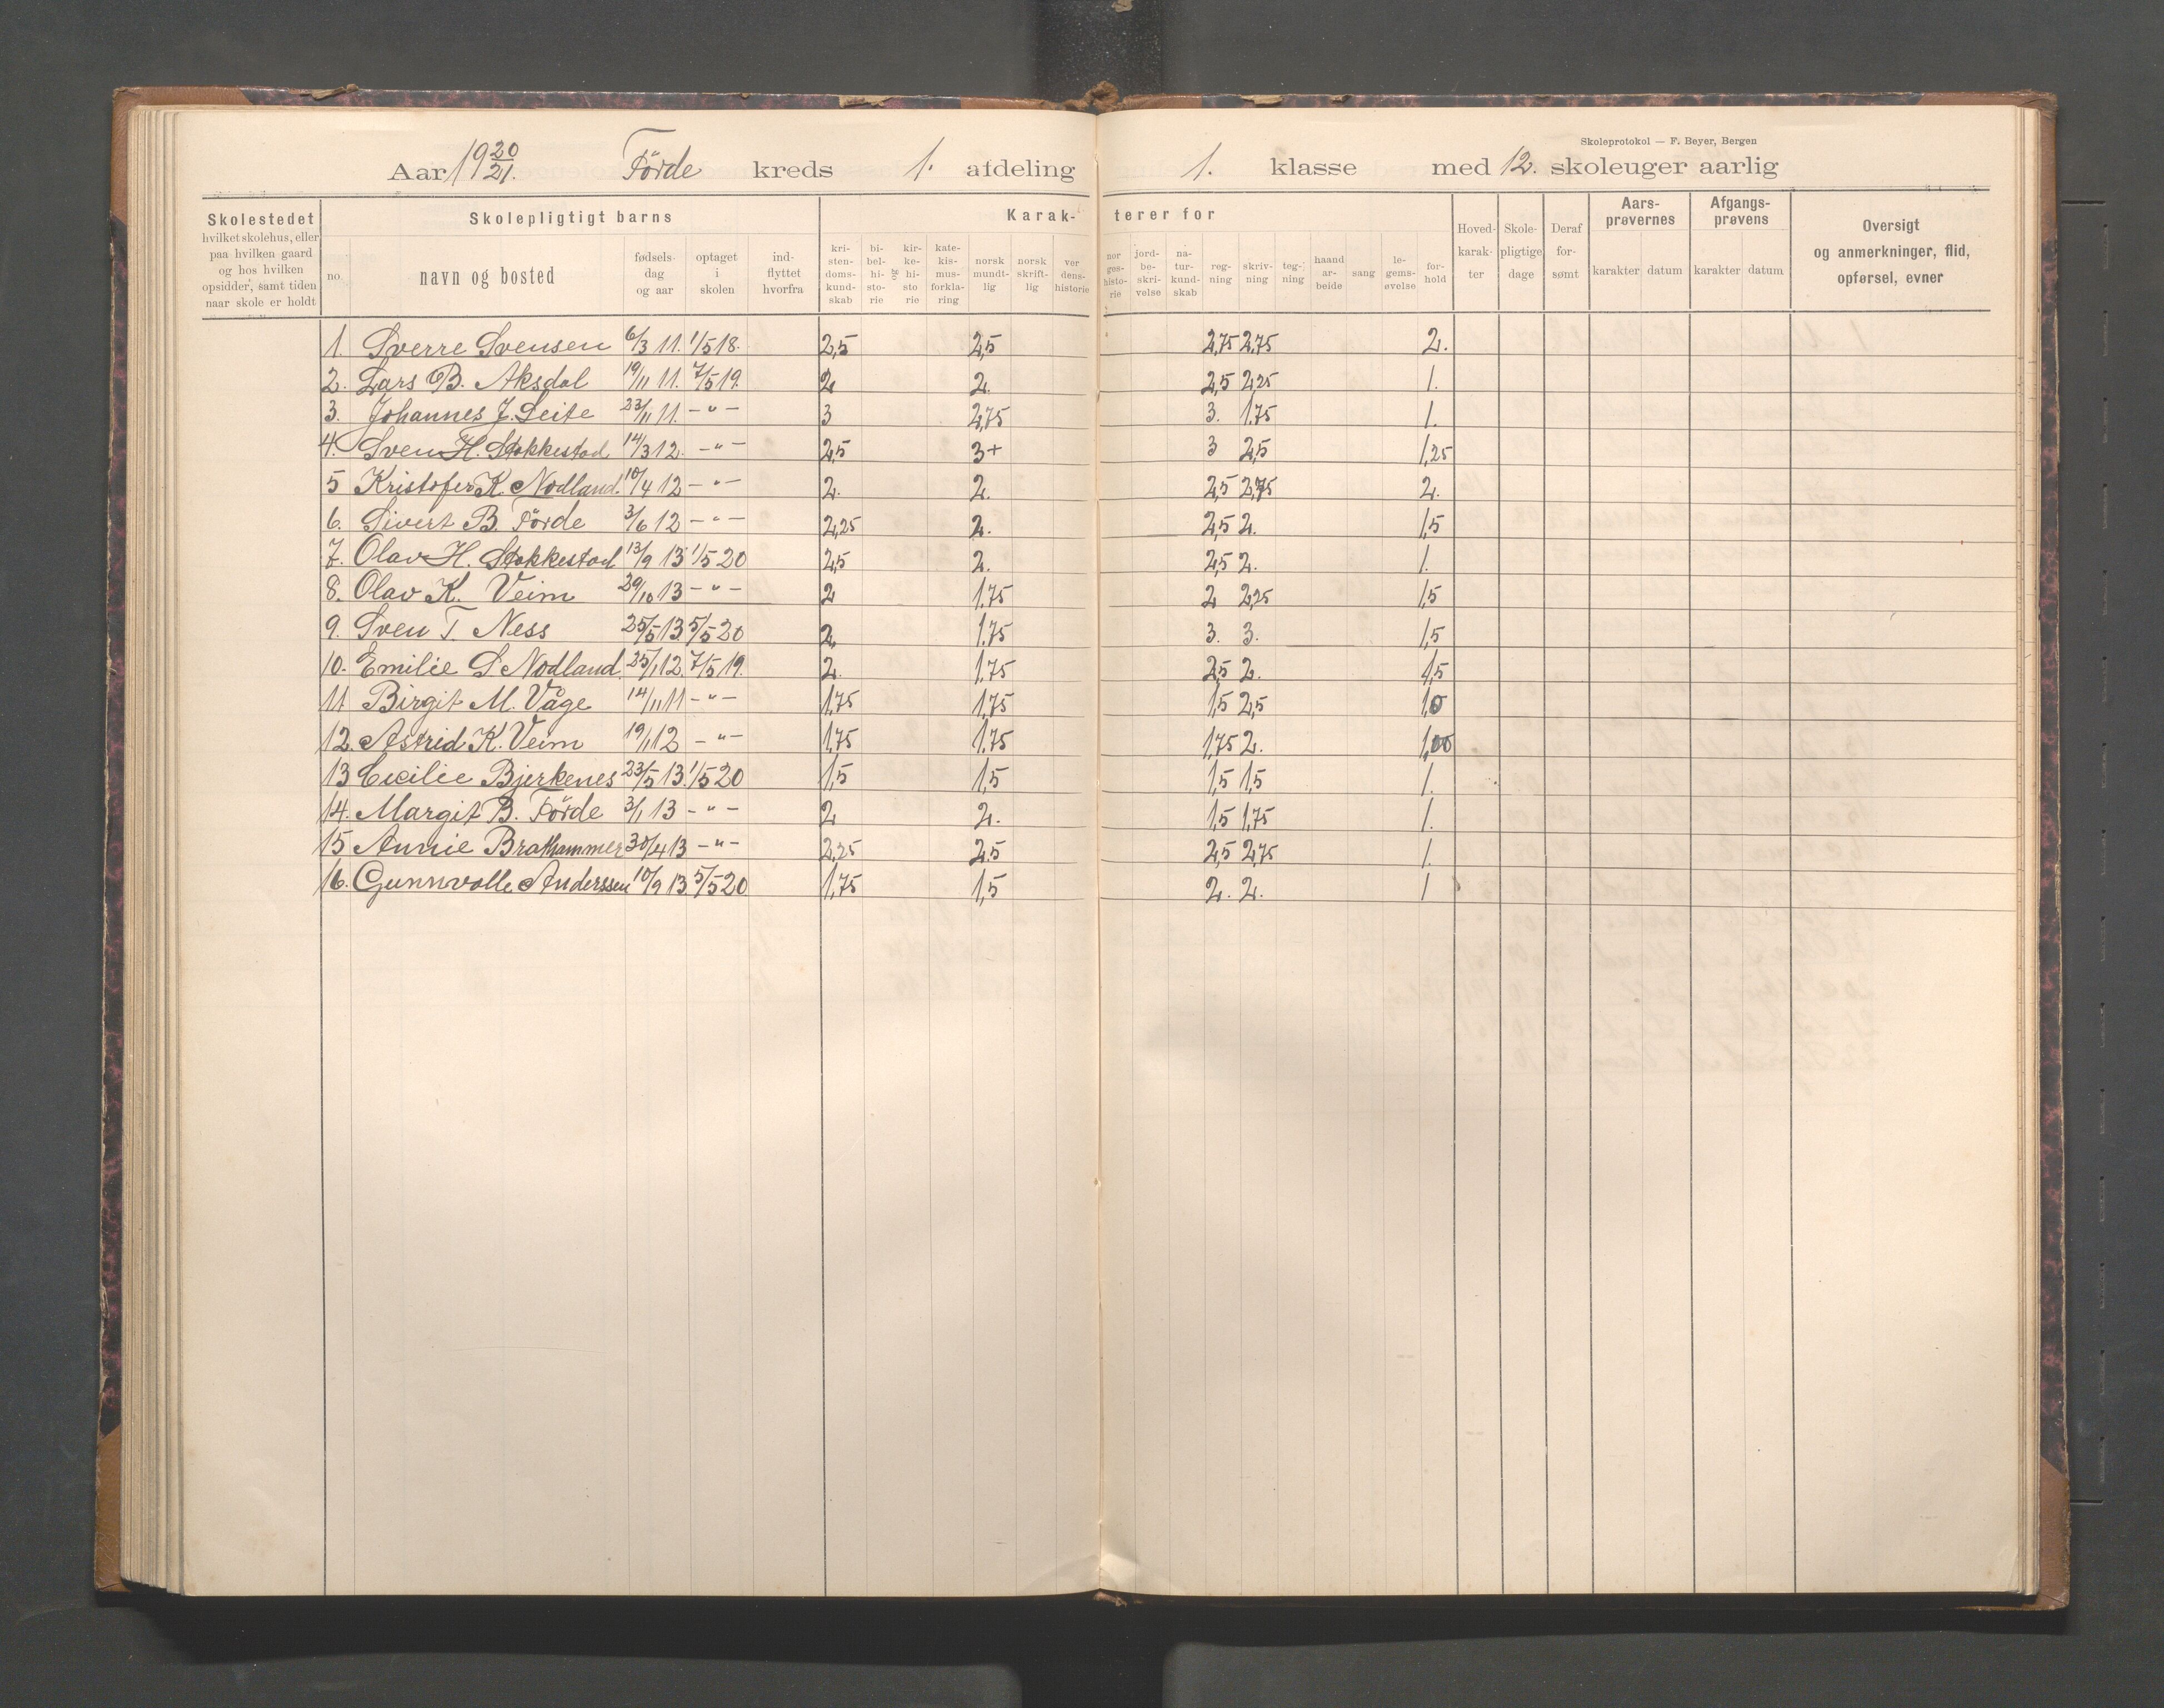 Skoleprotokol — F. Beyer, Bergen
Aar 19 20/21. Förde kreds 1. afdeling 1. klasse med 12. skoleuger aarlig
Skolestedet hvilket skolehus, eller paa hvilken gaard og hos hvilken opsidder, samt tiden naar skole er holdt
Skolepligtigt barns
no. navn og bosted fødselsdag og aar optaget i skolen indflyttet hvorfra
Karakterer for
kristendomskundskab bibelhistorie og kirkehistorie katekismusforklaring norsk mundtlig norsk skriftlig verdenshistorie norgeshistorie jordbeskrivelse naturkundskab regning skrivning tegning haandarbeide sang legemsøvelse forhold
Hovedkarakter Skolepligtige dage Deraf forsømt
Aarsprøvernes karakter datum
Afgangsprøvens karakter datum
Oversigt og anmerkninger, flid, opførsel, evner
1. Sverre Svensen 6/3 11. 1/5 18. 2,5 2,5 2,75 2,75 2.
2. Lars B. Aksdal 19/11 11. 7/5 19. 2 2. 2,5 2,25 1.
3. Johannes J. Leite 23/11 11. - " - 3 2,75 3. 1,75 1.
4. Sven H. Stokkestad 14/3 12. - " - 2,5 3+ 3 2,5 1,25
5 Kristofer K. Nodland. 10/4 12 - " - 2. 2. 2,5 2,75 2.
6. Sivert B. Förde 3/6 12 - " - 2,25 2. 2,5 2. 1,5
7. Olav H. Stokkestad 13/9 13 1/5 20 2,5 2. 2,5 2. 1.
8. Olav K. Veim 29/10 13 - " - 2 1,75 2 2,25 1,5
9. Sven T. Ness 25/5 13. 5/5 20 2. 1,75 3. 3. 1,5
10. Emilie S. Nodland. 25/1 12. 7/5 19. 2. 1,75 2,5 2. 1,5
11 Birgit M. Våge 14/11 11 - " - 1,75 1,75 1,5 2,5 1,0
12. Astrid K. Veim 19/1 12 - " - 1,75 1,75 1,75 2. 1,00
13 Cecilie Bjerkenes 23/5 13. 1/5 20 1,5 1,5 1,5 1,5 1.
14. Margit B. Förde 3/1 13 - " - 2 2. 1,5 1,75 1.
15 Annie Brathammer 30/4 13 - " - 2,25 2,5 2,5 2,75 1.
16. Gunnvolle Anderssen 10/9 13. 5/5 20 1,75 1,5 2. 2. 1